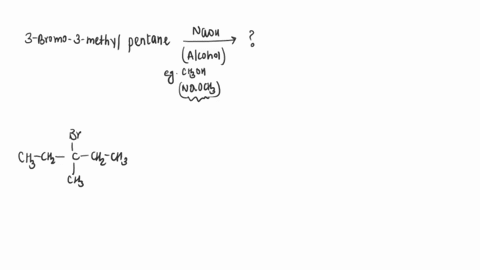 3-Bromo-3-methyl pentane NaOH ?
(Alcohol)
eg. CH3OH
(NaOCH3)
Br
CH3-CH2-C-CH2-CH3
CH3